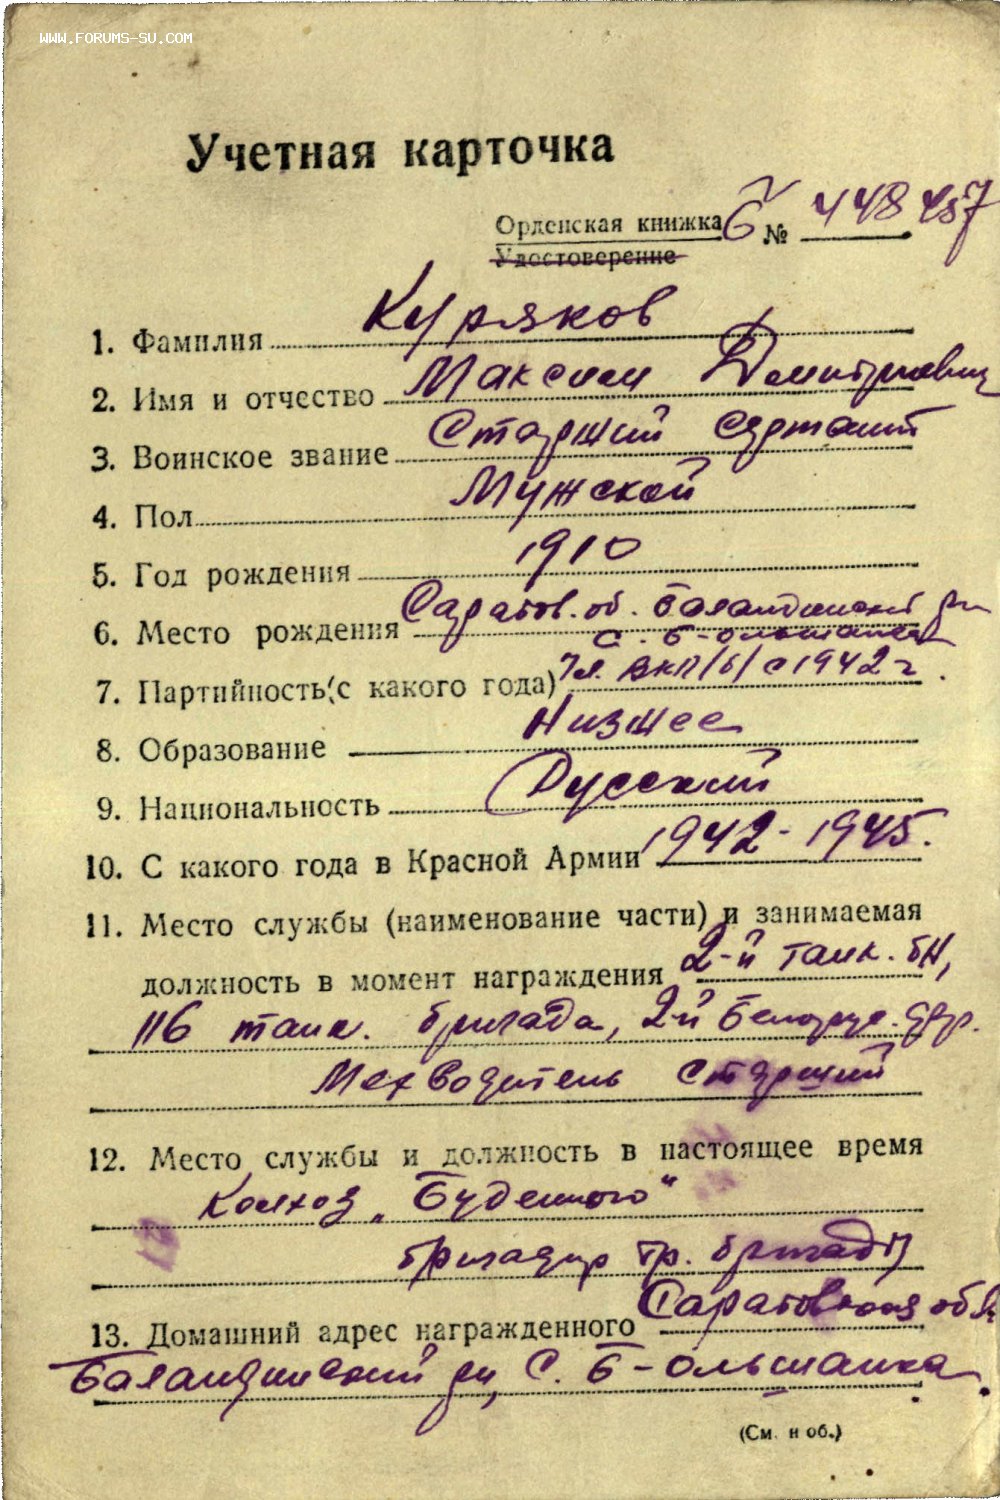 WWW.FORUMS-SU.COM
Учетная карточка
Орденская книжка Б № 448457
Удостоверение
1. Фамилия Куряков
2. Имя и отчество Максим Дмитриевич
3. Воинское звание Старший сержант
4. Пол Мужской
5. Год рождения 1910
6. Место рождения Саратов. об. Баландинский рн
с. Б-Ольшанка
7. Партийность (с какого года) Чл. ВКП/б/ с 1942 г.
8. Образование Низшее
9. Национальность Русский
10. С какого года в Красной Армии 1942-1945.
11. Место службы (наименование части) и занимаемая
должность в момент награждения 2-й танк. бн,
116 танк. бригада, 2-й Белорус. фр.
Мехводитель старший
12. Место службы и должность в настоящее время
Колхоз „Буденного"
бригадир тр. бригады
13. Домашний адрес награжденного Саратовская обл.
Баландинский рн, с. Б-Ольшанка.
(См. н об.)